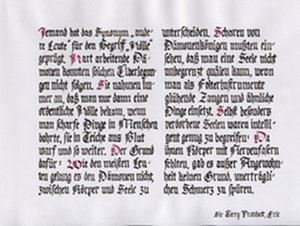 Jemand hat das Synonym „ande
re Leute" für den Begriff „Hölle"
geprägt. Hart arbeitende Dä-
monen konnten solchen Überlegun-
gen nicht folgen. Sie nahmen im-
mer an, daß man nur dann eine
ordentliche Hölle bekam, wenn
man scharfe Dinge in Menschen
bohrte, sie in Teiche aus Blut
warf und so weiter. Der Grund
dafür: Wie den meisten Leu-
ten gelang es den Dämonen nicht,
zwischen Körper und Seele zu
unterscheiden. Scharen von
Dämonenkönigen mußten ein-
sehen, daß man eine Seele nicht
unbegrenzt quälen kann, wenn
man als Folterinstrumente
glühende Zangen und ähnliche
Dinge einsetzt. Selbst besonders
verdorbene Seelen waren intelli-
gent genug zu begreifen: Da
ihnen Körper mit Nervenfasern
fehlten, gab es außer Angewohn-
heit keinen Grund, unerträgli-
chen Schmerz zu spüren.
Sir Terry Pratchett, Eric